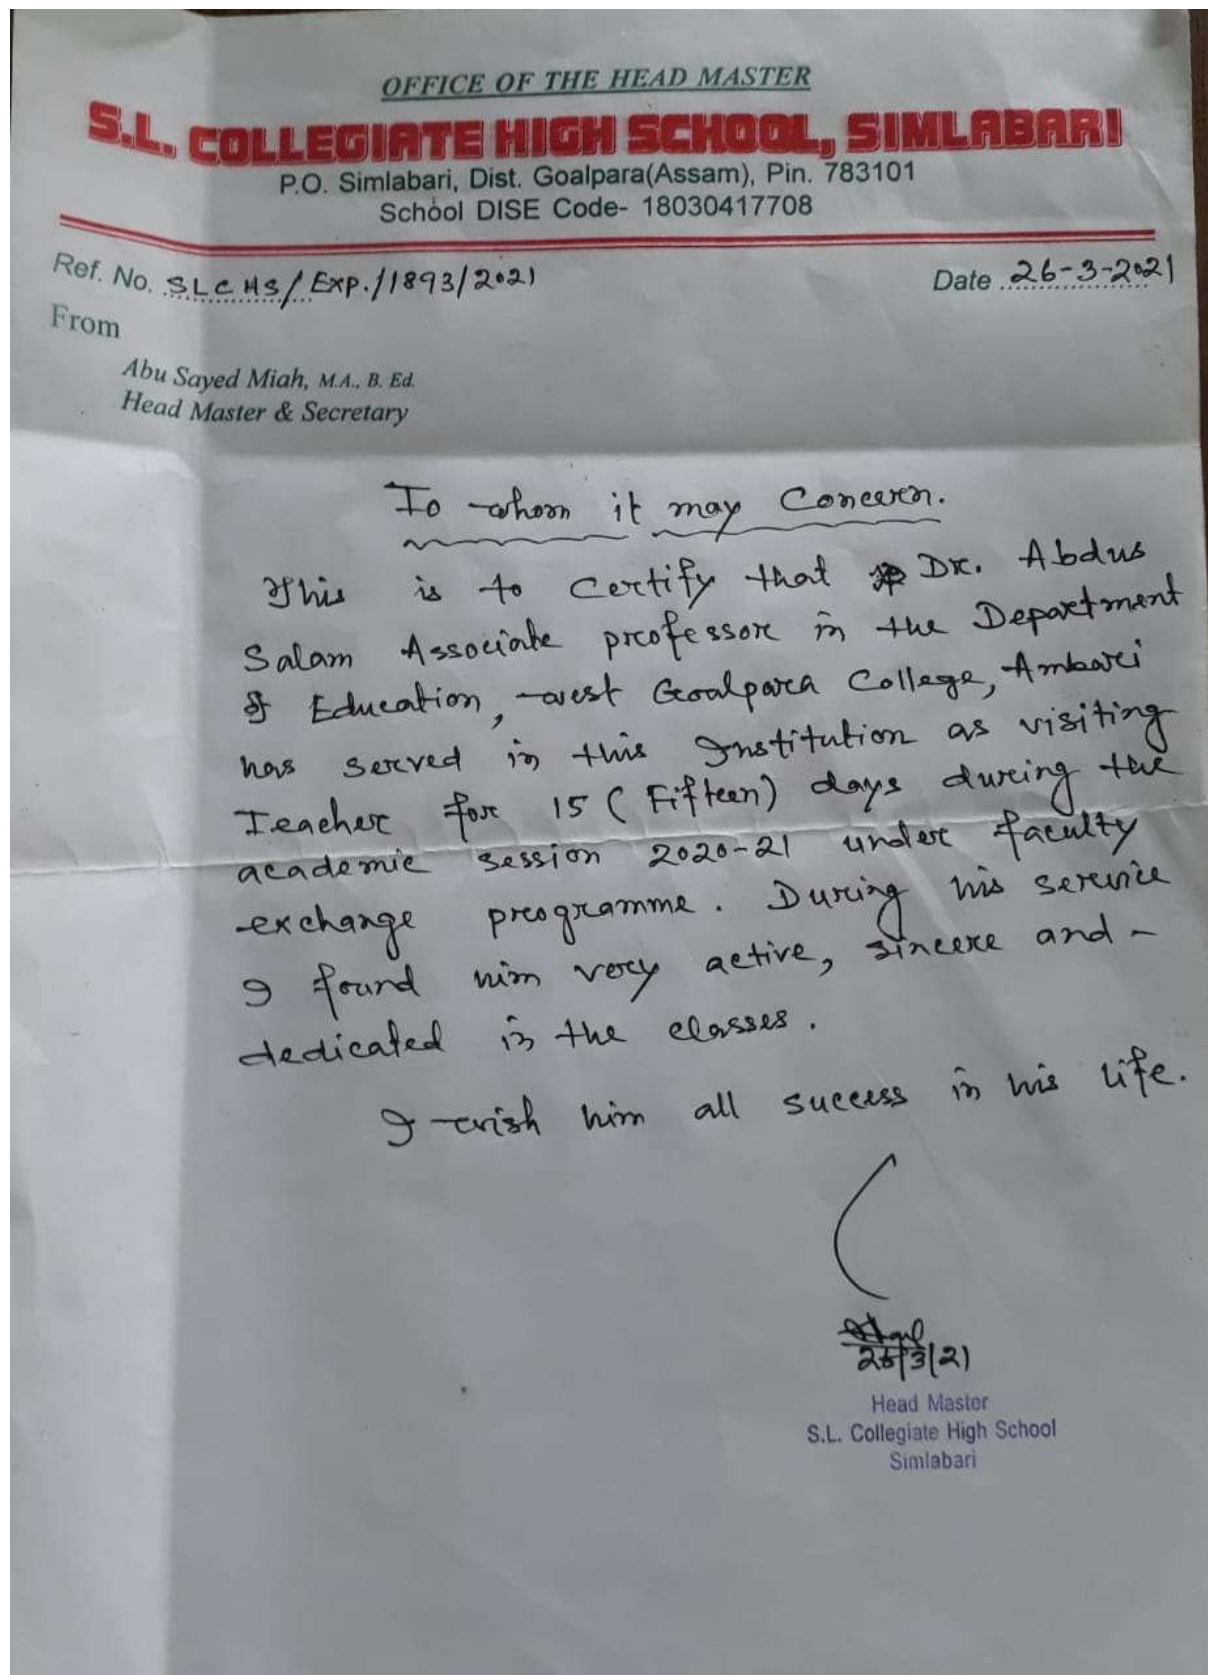 OFFICE OF THE HEAD MASTER
S.L. COLLEGIATE HIGH SCHOOL, SIMLABARI
P.O. Simlabari, Dist. Goalpara(Assam), Pin. 783101
School DISE Code- 18030417708
Ref. No. SLCHS/Exp./1893/2021
Date 26-3-2021
From
Abu Sayed Miah, M.A., B. Ed.
Head Master & Secretary
To whom it may Concern.
This is to Certify that Dr. Abdus
Salam Associate professor in the Department
of Education, west Goalpara College, Ambari
has served in this Institution as visiting
Teacher for 15 (Fifteen) days during the
academic session 2020-21 under faculty
exchange programme. During his service
I found him very active, sincere and -
dedicated in the classes.
I wish him all success in his life.
26/3/21
Head Master
S.L. Collegiate High School
Simlabari